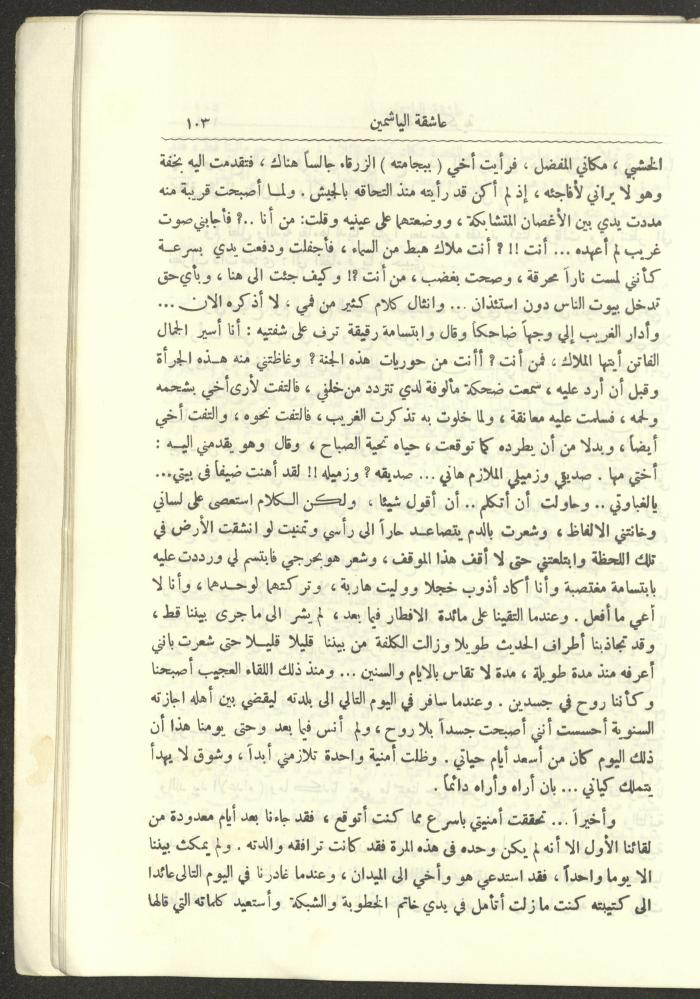 عاشقة الياشمين
١٠٣
الخشبي ، مكاني المفضل ، فرأيت أخي ( ببجامته ) الزرقاء جالساً هناك ، فتقدمت اليه بخفة
وهو لا يراني لأفاجئه ، إذ لم أكن قد رأيته منذ التحاقه بالجيش . ولمـا أصبحت قريبة منه
مددت يدي بين الأغصان المتشابكة ، ووضعتهما على عينيه وقلت: من أنا ..? فأجابني صوت
غريب لم أعهده ... أنت !! ? أنت ملاك هبط من السماء ، فأجفلت ودفعت يدي بسرعـة
كأنني لمست ناراً محرقة ، وصحت بغضب ، من أنت ?! وكيف جئت الى هنا ، وبأي حق
تدخل بيوت الناس دون استئذان ... وانثال كلام كثير من فمي ، لا أذكره الان ...
وأدار الغريب إلي وجهاً ضاحكاً وقال وابتسامة رقيقة ترف على شفتيه : أنا أسير الجمال
الفاتن أيتها الملاك ، فمن أنت ? أأنت من حوريات هذه الجنة ? وغاظتني منه هـذه الجرأة
وقبل أن أرد عليه ، سمعت ضحكة مألوفة لدي تتردد من خلفي ، فالتفت لأرى أخي بشحمه
ولحمه ، فسلمت عليه معانقة ، ولما خلوت به تذكرت الغريب ، فالتفت نحوه ، والتفت أخي
أيضاً ، وبدلا من أن يطرده كما توقعت ، حياه تحية الصباح ، وقال وهو يقدمني اليـه :
أختي مها . صديقي وزميلي الملازم هاني ... صديقه ? وزميله !! لقد أهنت ضيفاً في بيتي...
يالغباوتي .. وحاولت أن أتكلم .. أن أقول شيئا ، ولكن الـكلام استعصى على لساني
وخانتني الالفاظ ، وشعرت بالدم يتصاعـد حاراً الى رأسي وتمنيت لو انشقت الأرض في
تلك اللحظة وابتلعتني حتى لا أقف هذا الموقف ، وشعر هو بحرجي فابتسم لي ورددت عليه
بابتسامة مغتصبة وأنا أكاد أذوب خجلا ووليت هاربة ، وتركتهما لوحـدهما ، وأنا لا
أعي ما أفعل . وعندما التقينا على مائدة الافطار فيما بعد ، لم يشر الى ما جرى بيننا قط ،
وقد تجاذبنا أطراف الحديث طويلا وزالت الكلفة من بيننا قليلا قليـلا حتى شعرت بانني
أعرفه منذ مدة طويلة ، مدة لا تقاس بالايام والسنين ... ومنذ ذلك اللقاء العجيب أصبحنا
وكأننا روح في جسدين . وعندما سافر في اليوم التالي الى بلدته ليقضي بين أهله اجازته
السنوية أحسست أنني أصبحت جسداً بلا روح ، ولم أنس فيما بعد وحتى يومنا هذا أن
ذلك اليوم كان من أسعد أيام حياتي . وظلت أمنية واحدة تلازمني أبداً ، وشوق لا يهدأ
يتملك كياني ... بان أراه وأراه دائماً .
وأخيراً ... تحققت أمنيتي باسرع مما كنت أتوقع ، فقد جاءنا بعد أيام معدودة من
لقائنا الأول الا أنه لم يكن وحده في هذه المرة فقد كانت ترافقه والدته . ولم يمكث بيننا
الا يوما واحداً ، فقد استدعي هو وأخي الى الميدان ، وعندما غادرنا في اليوم التالي عائدا
الى كتيبته كنت ما زلت أتأمل في يدي خاتم الخطوبة والشبكة وأستعيد كلماته التي قالها